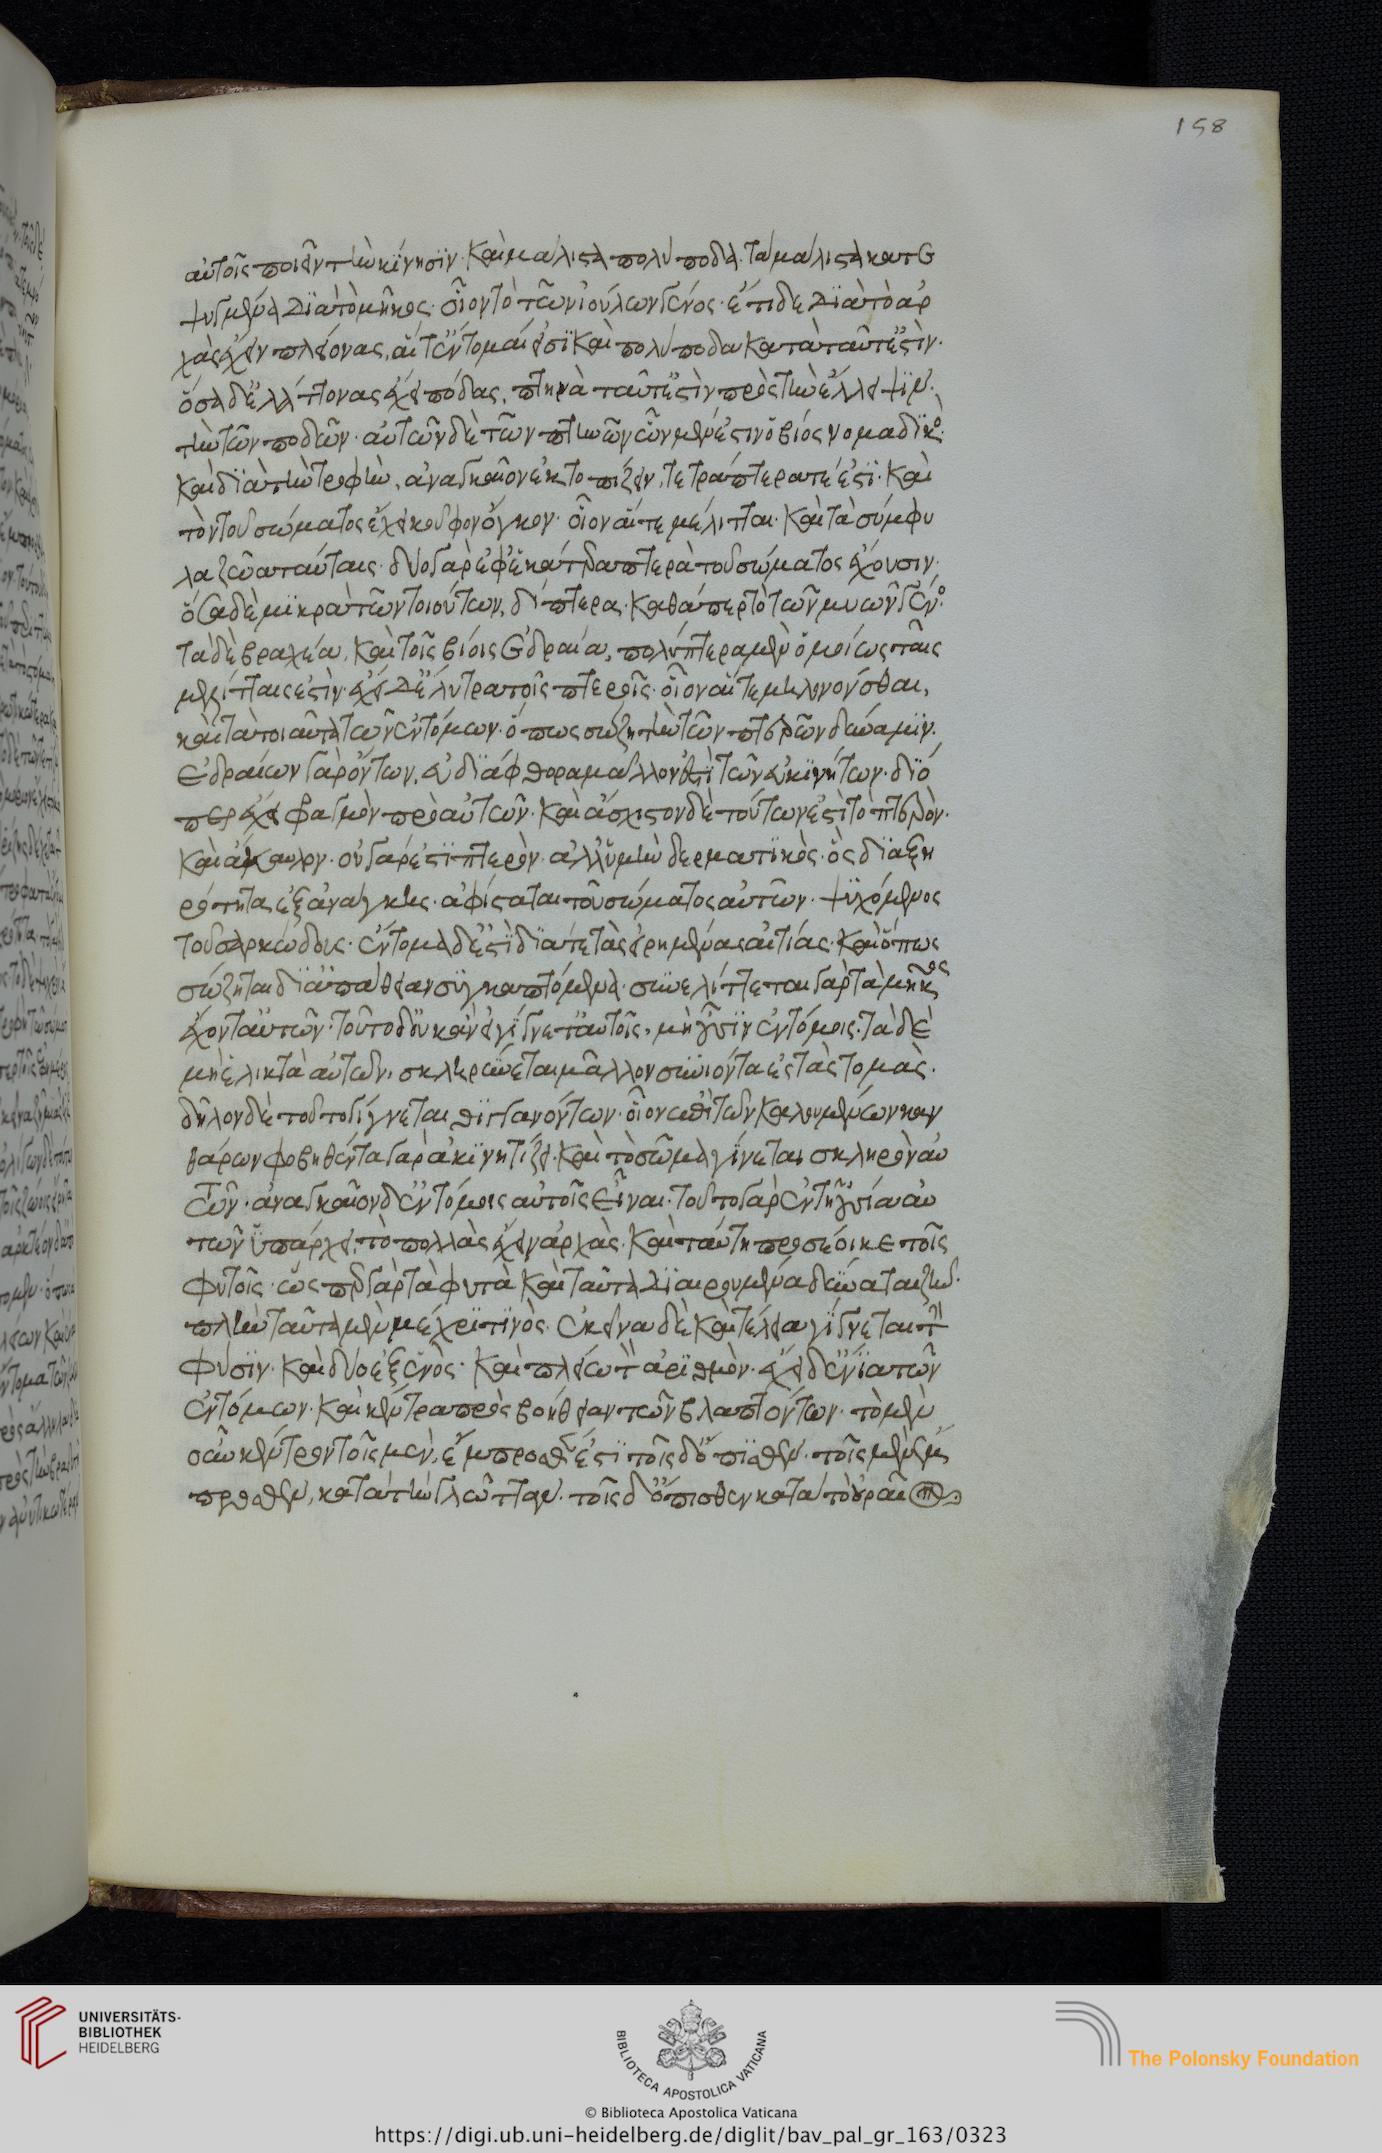 158
αὐτοῖς ποιεῖν τὴν κίνησιν. καὶ μάλιστα πολύποδα. τὰ μάλιστα κατε
ψυγμένα διὰ τὸ μῆκος. οἷον τὸ τῶν ἰούλων γένος. ἔτι δὲ διὰ τὸ ἀρ
χὰς ἔχειν πλείονας, αἵ τ' ἐντομαί εἰσι καὶ πολύποδα κατὰ ταῦτ' ἐστίν.
ὅσα δ' ἐλάττονας ἔχει πόδας, πτηνὰ ταῦτ' ἐστὶν πρὸς τὴν ἔλλειψιν.
τὴν τῶν ποδῶν. αὐτῶν δὲ τῶν πτηνῶν ὧν μέν ἐστιν ὁ βίος νομαδικὸς.
καὶ διὰ τὴν τροφὴν, ἀναγκαῖον ἐκτοπίζειν, τετράπτερά τε ἐστι. καὶ
τὸν τοῦ σώματος ἔχει κοῦφον ὄγκον. οἷον αἵ τε μέλιτται. καὶ τὰ σύμφυ
λα ζῶα ταύταις. δύο γὰρ ἐφ' ἑκάτερα πτερὰ τοῦ σώματος ἔχουσιν.
ὅσα δὲ μικρὰ τῶν τοιούτων, δίπτερα. καθάπερ τὸ τῶν μυιῶν γένος.
τὰ δὲ βραχέα, καὶ τοῖς βίοις ἑδραῖα, πολύπτερα μὲν ὁμοίως ταῖς
μελίτταις ἐστὶν. ἔχει δ' ἔλυτρα τοῖς πτεροῖς. οἷον αἵ τε μηλολόνθαι,
καὶ τὰ τοιαῦτα τῶν ἐντόμων. ὅπως σώζη τὴν τῶν πτερῶν δύναμιν.
ἑδραίων γὰρ ὄντων, εὐδιάφθορα μᾶλλον ἐστὶ τῶν εὐκινήτων. διό
περ ἔχει φραγμὸν πρὸ αὐτῶν. καὶ ἄσχιστον δὲ τούτων ἐστὶ τὸ πτερὸν.
καὶ ἄκαυλον. οὐ γάρ ἐστι πτερὸν. ἀλλ' ὑμὴν δερματικὸς. ὃς διὰ ξη
ρότητα ἐξ ἀνάγκης. ἀφίσταται τοῦ σώματος αὐτῶν. ψυχόμενος
τοῦ σαρκώδους. ἔντομα δ' ἐστὶ διά τε τὰς εἰρημένας αἰτίας. καὶ ὅπως
σώζηται δι' ἀπάθειαν συγκαπτόμενα. συνελίττεται γὰρ τὰ μῆκος
ἔχοντα αὐτῶν. τοῦτο δ' οὐκ ἂν ἐγίγνετ' αὐτοῖς, μὴ οὖσιν ἐντόμοις. τὰ δὲ
μὴ ἑλικτὰ αὐτῶν, σκληρύνεται μᾶλλον συνιόντα εἰς τὰς τομὰς.
δῆλον δὲ τοῦτο γίγνεται θιγγανόντων. οἷον ἐπὶ τῶν καλουμένων καν
θάρων φοβηθέντα γὰρ ἀκινητίζει. καὶ τὸ σῶμα γίνεται σκληρὸν αὐ
τῶν. ἀναγκαῖον δ' ἐντόμοις αὐτοῖς εἶναι. τοῦτο γὰρ ἐν τῇ οὐσίᾳ αὐ
τῶν ὑπάρχει, τὸ πολλὰς ἔχειν ἀρχὰς. καὶ ταύτη προσέοικε τοῖς
φυτοῖς. ὥσπερ γὰρ τὰ φυτὰ καὶ ταῦτα διαιρούμενα δύναται ζῆν.
πλὴν ταῦτα μὲν μέχρι τινὸς. ἐκεῖνα δὲ καὶ τέλεια γίγνεται τὴν
φύσιν. καὶ δύο ἐξ ἑνὸς. καὶ πλείω τὸν ἀριθμὸν. ἔχει δ' ἔνια τῶν
ἐντόμων. καὶ κέντρα πρὸς βοήθειαν τῶν βλαπτόντων. τὸ μὲν
οὖν κέντρον τοῖς μὲν, ἔμπροσθέν ἐστι τοῖς δ' ὄπισθεν. τοῖς μὲν ἔμ
προσθεν, κατὰ τὴν γλῶτταν. τοῖς δ' ὄπισθεν κατὰ τὸ οὐραῖον
UNIVERSITÄTS-
BIBLIOTHEK
HEIDELBERG
BIBLIOTECA APOSTOLICA VATICANA
The Polonsky Foundation
© Biblioteca Apostolica Vaticana
https://digi.ub.uni-heidelberg.de/diglit/bav_pal_gr_163/0323